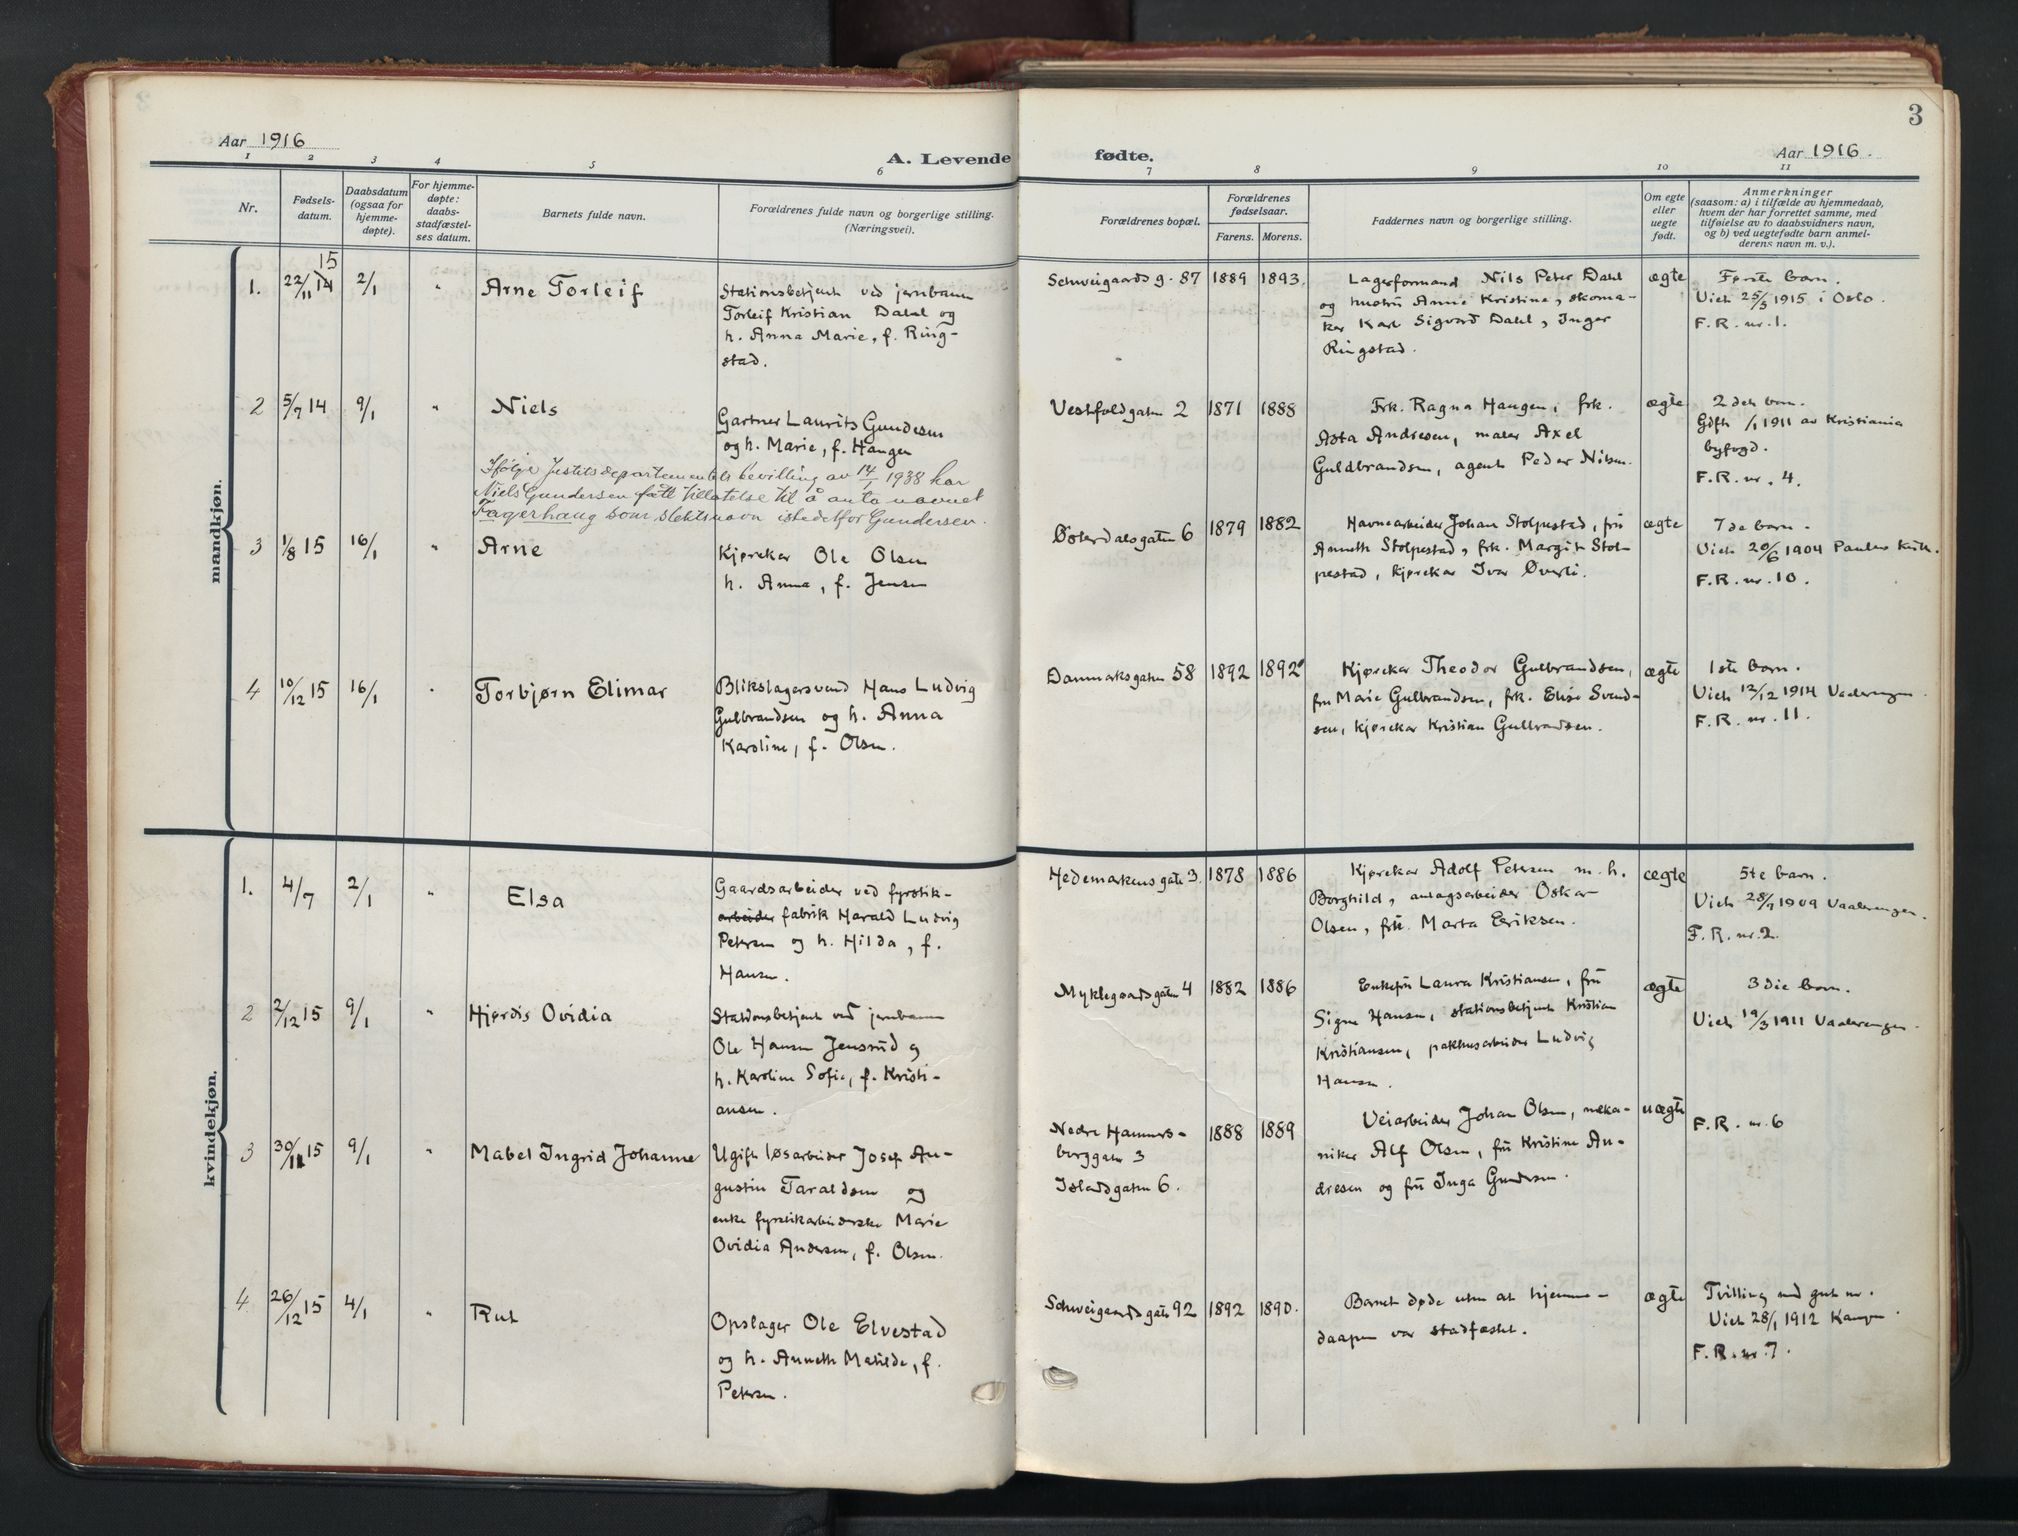 3
Aar 1916
A. Levende fødte.
Aar 1916.
1 2 3 4 5 6 7 8 9 10 11
Nr.
Fødsels-
datum.
Daabsdatum
(ogsaa for
hjemme-
døpte).
For hjemme-
døpte:
daabs-
stadfæstel-
ses datum.
Barnets fulde navn.
Forældrenes fulde navn og borgerlige stilling.
(Næringsvei).
Forældrenes bopæl.
Forældrenes
fødselsaar.
Farens. Morens.
Faddernes navn og borgerlige stilling.
Om egte
eller
uegte
født.
Anmerkninger
(saasom: a) i tilfælde av hjemmedaab,
hvem der har forrettet samme, med
tilføielse av to daabsvidners navn,
og b) ved uegtefødte barn anmel-
derens navn m. v.).
mandkjøn.
1. 22/11 14 15 2/1 " Arne Torleif
Stationsbetjent ved jernbanen
Torleif Kristian Dahl og
h. Anna Marie, f. Ring-
stad.
Schweigaards g. 87 1889 1893.
Lagerformand Nils Peter Dahl
og hustru Anne Kristine, skoma-
ker Karl Sigvard Dahl, Inger
Ringstad.
ægte
Første barn.
Viet 25/5 1915 i Oslo.
F. R. nr. 1.
2 5/7 14 9/1 " Niels
Gartner Laurits Gundesen
og h. Marie, f. Haugen
Ifølge Jestitsdepartementets bevilling av 14/1 1938 har
Niels Gundersen fått tillatelse til å anta navnet
Fagerhaug som slektsnavn istedetfor Gundersen.
Vestfoldgaten 2 1871 1888
Frk. Ragna Haugen, frk.
Asta Andresen, maler Axel
Guldbrandsen, agent Peder Nilsen.
ægte
2 det barn.
Gift /1 1911 av Kristiania
byfogd.
F. R. nr. 4.
3 1/8 15 16/1 " Arne
Kjørekar Ole Olsen
h. Anna, f. Jensen
Østerdalsgaten 6 1879 1882
Havnearbeider Johan Stolpestad, fru
Annette Stolpestad, frk. Margit Stol-
pestad, kjørekar Ivar Øverli.
ægte
7 de barn.
Viet 20/6 1904 Paulus kirk.
F. R. nr. 10.
4 10/12 15 16/1 " Torbjørn Elimar
Blikslagersvend Hans Ludvig
Gulbrandsen og h. Anna
Karoline, f. Olsen.
Danmarksgaten 58 1892 1892
Kjørekar Theodor Gulbrandsen,
fru Marie Gulbrandsen, frk. Elise Svend-
sen, kjørekar Kristian Gulbrandsen.
ægte
1ste barn.
Viet 12/12 1914 Vaalerengen.
F. R. nr. 11.
kvindekjøn.
1. 4/7 2/1 " Elsa
Gaardsarbeider ved fyrstik-
arbeider fabrik Harald Ludvig
Petersen og h. Hilda, f.
Hansen.
Hedemarkens gate 3. 1878 1886
Kjørekar Adolf Petersen m. h.
Borghild, anlagsarbeider Oskar
Olsen, frk. Marta Eriksen.
ægte
5te barn.
Viet 28/7 1909 Vaalerengen.
F. R. nr. 2.
2 2/12 15 9/1 " Hjørdis Ovidia
Stationsbetjent ved jernbanen
Ole Hansen Jensrud og
h. Karoline Sofie, f. Kristi-
ansen.
Myklegaardsgaten 4 1882 1886
Enkefru Laura Kristiansen, fru
Signe Hansen, stationsbetjent Kristian
Kristiansen, pakhusarbeider Ludvig
Hansen.
ægte
3 die barn.
Viet 19/3 1911 Vaalerengen.
3 30/11 15 9/1 " Mabel Ingrid Johanne
Ugift løsarbeider Josef Au-
gustin Taraldsen og
enke fyrstikarbeiderske Marie
Ovidia Andersen, f. Olsen.
Nedre Hammers-
borggaten 3
Islandsgaten 6.
1888 1889
Veiarbeider Johan Olsen, meka-
niker Alf Olsen, fru Kristine An-
dresen og fru Inga Gundersen.
uægte
F. R. nr. 6
4 26/12 15 4/1 " Rut
Opslager Ole Elvestad
og h. Annette Matilde, f.
Petersen.
Schweigaardsgate 92 1892 1890.
Barnet døde uten at hjemme-
daapen var stadfæstet.
ægte
Tvilling med gut nr.
Viet 28/1 1912 Kampen
F. R. nr. 7.